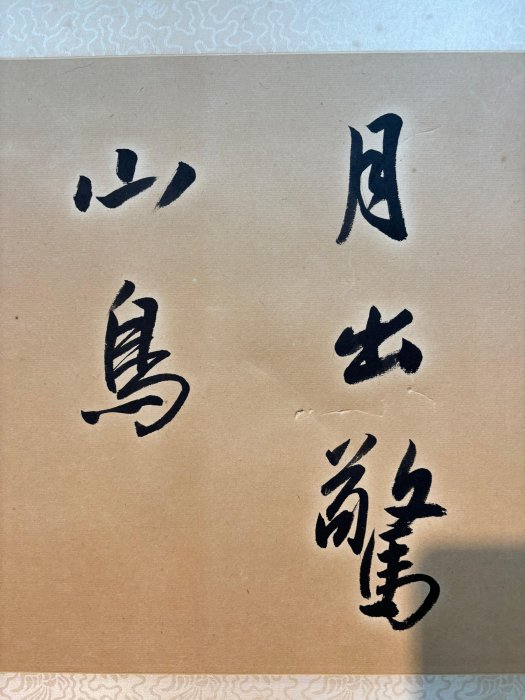 月出驚
山鳥